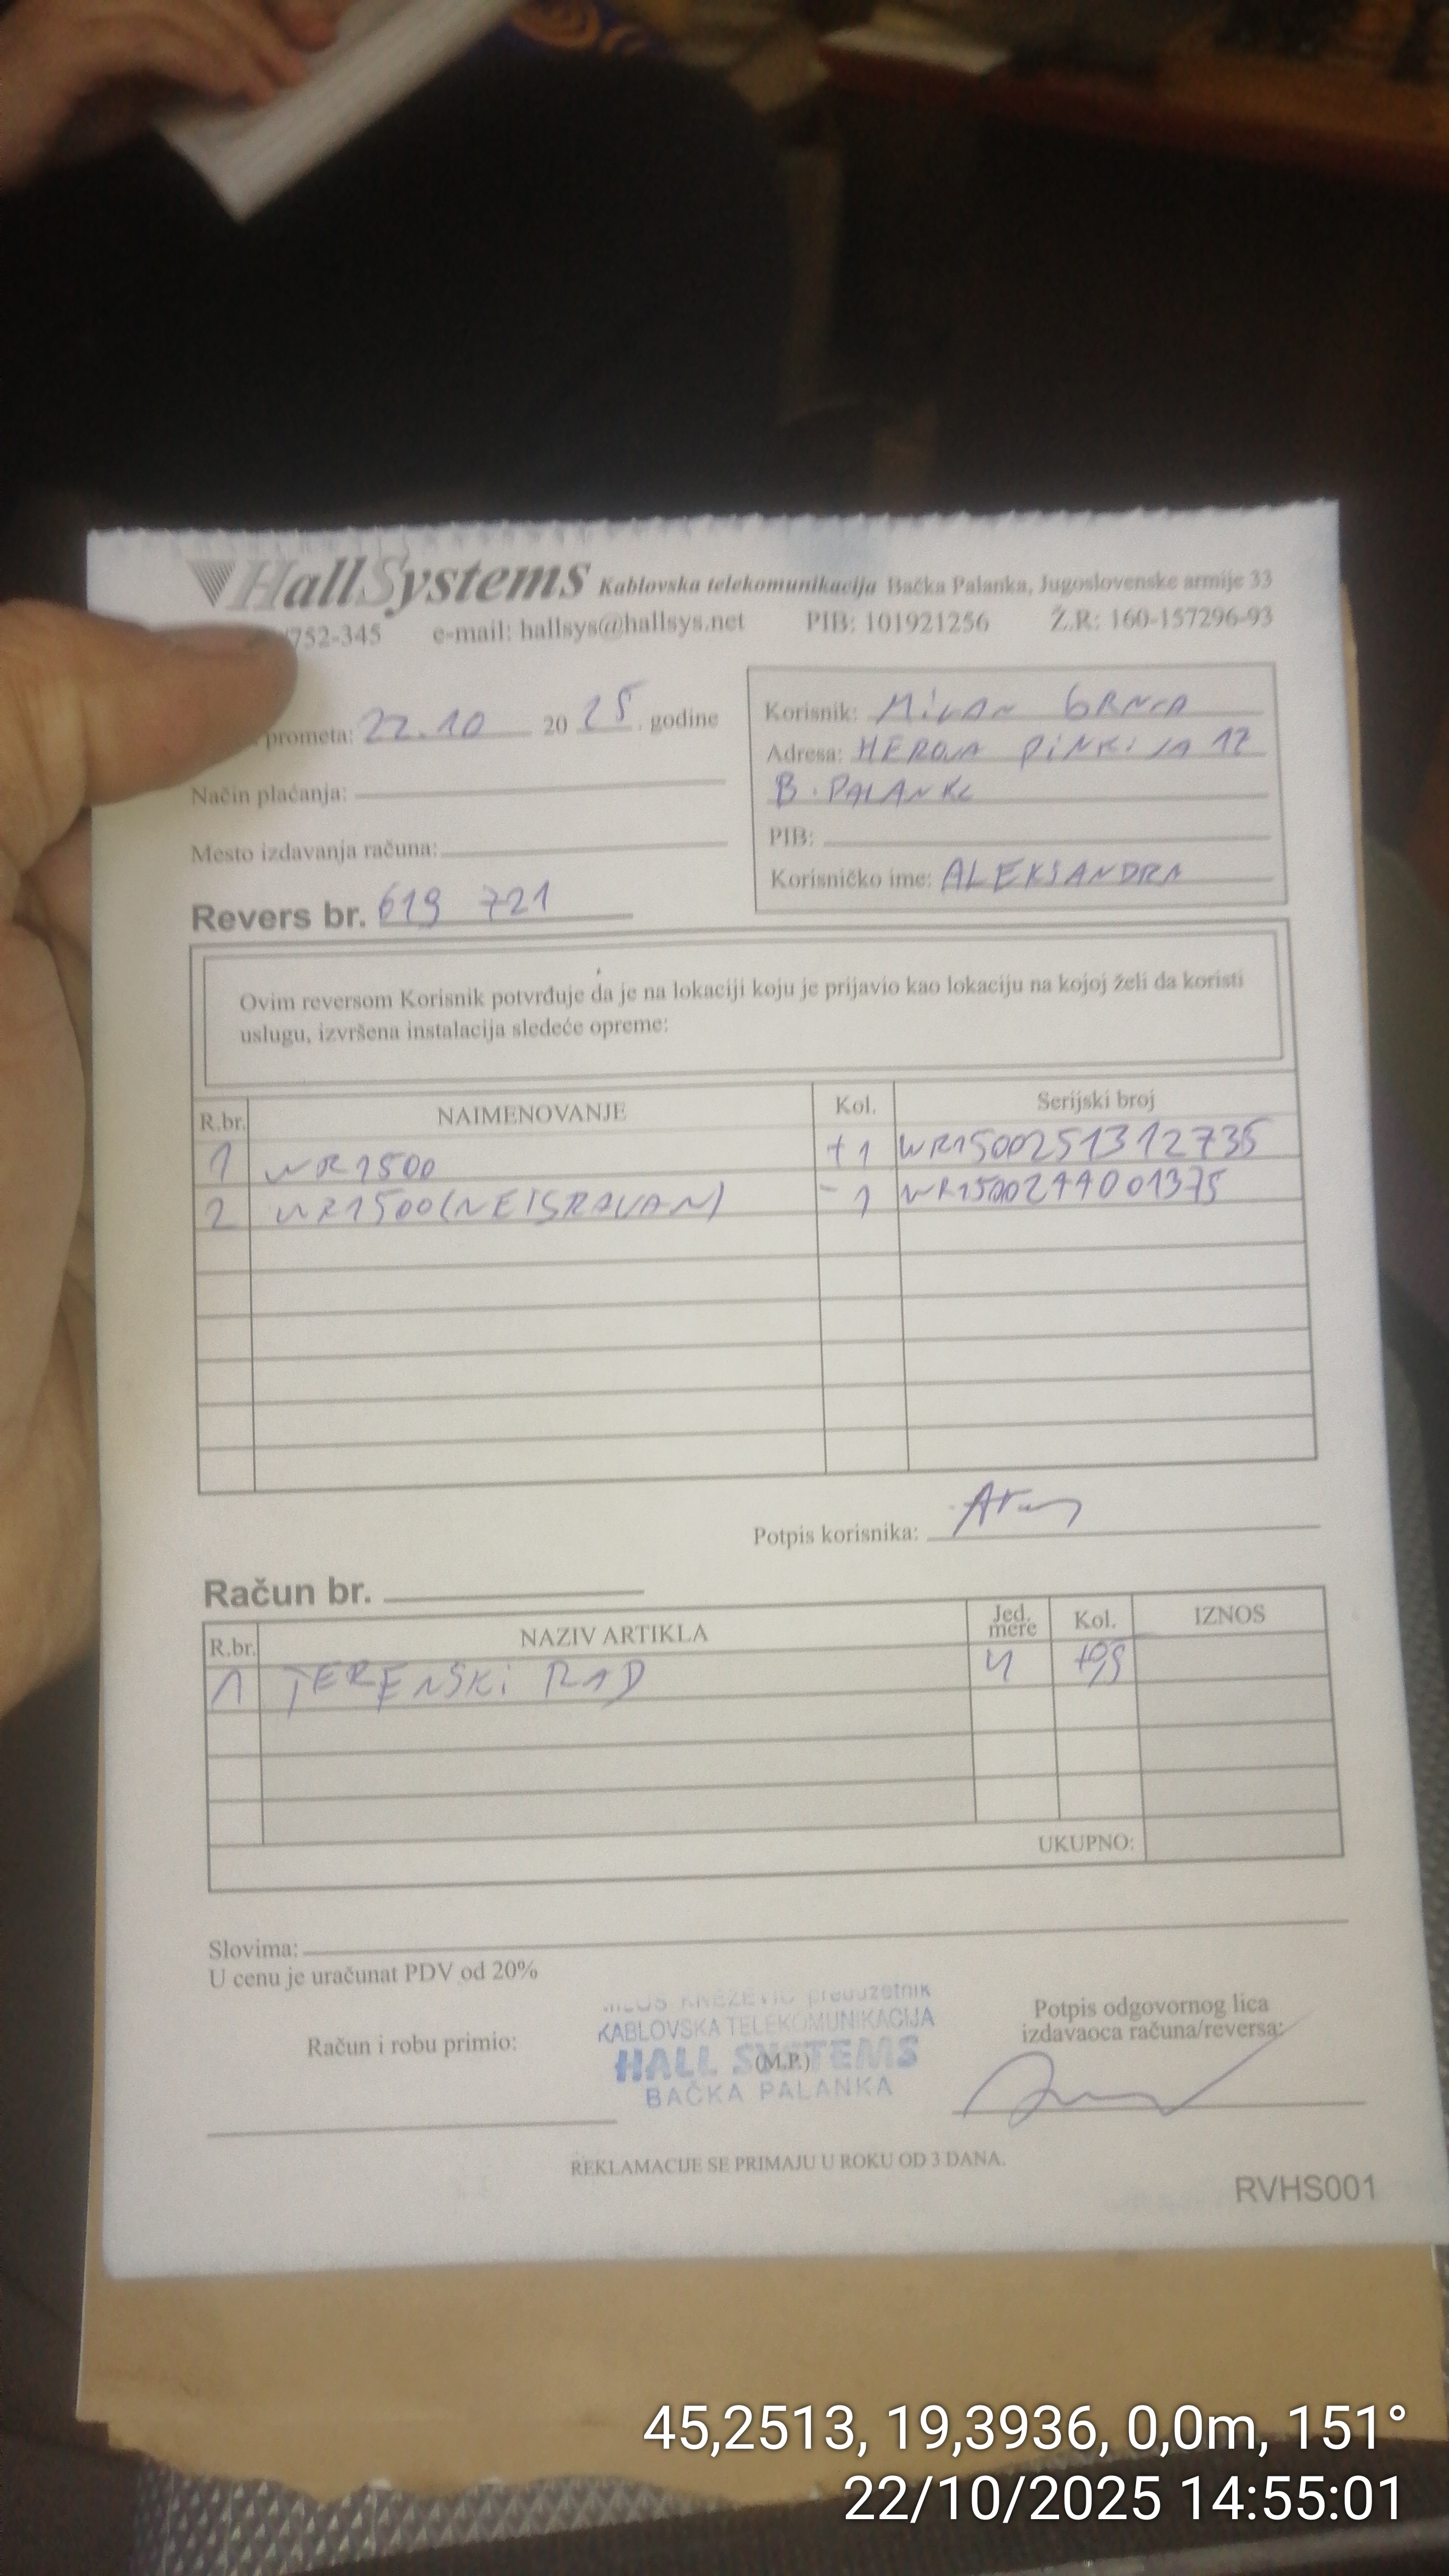 HallSystems Kablovska telekomunikacija Bačka Palanka, Jugoslovenske armije 33
752-345 e-mail: hallsys@hallsys.net PIB: 101921256 Ž.R: 160-157296-93
prometa: 22.10 20 25. godine
Način plaćanja:
Mesto izdavanja računa:
Revers br. 619 721
Korisnik: MiLAN GRNJA
Adresa: HEROJA PiNKiJA 17
B. PALANKA
PIB:
Korisničko ime: ALEKSANDRA
Ovim reversom Korisnik potvrđuje da je na lokaciji koju je prijavio kao lokaciju na kojoj želi da koristi
uslugu, izvršena instalacija sledeće opreme:
R.br. NAIMENOVANJE Kol. Serijski broj
1 WR1500 +1 WR1500251312735
2 WR1500(NEISPRAVAN) -1
Potpis korisnika:
Račun br.
R.br. NAZIV ARTIKLA Jed. mere Kol. IZNOS
1 TERENSKi RAD
UKUPNO:
Slovima:
U cenu je uračunat PDV od 20%
Račun i robu primio:
MILOŠ KNEŽEVIĆ preduzetnik
KABLOVSKA TELEKOMUNIKACIJA
HALL SYSTEMS
(M.P.)
BAČKA PALANKA
Potpis odgovornog lica
izdavaoca računa/reversa:
REKLAMACIJE SE PRIMAJU U ROKU OD 3 DANA.
RVHS001
45,2513, 19,3936, 0,0m, 151°
22/10/2025 14:55:01